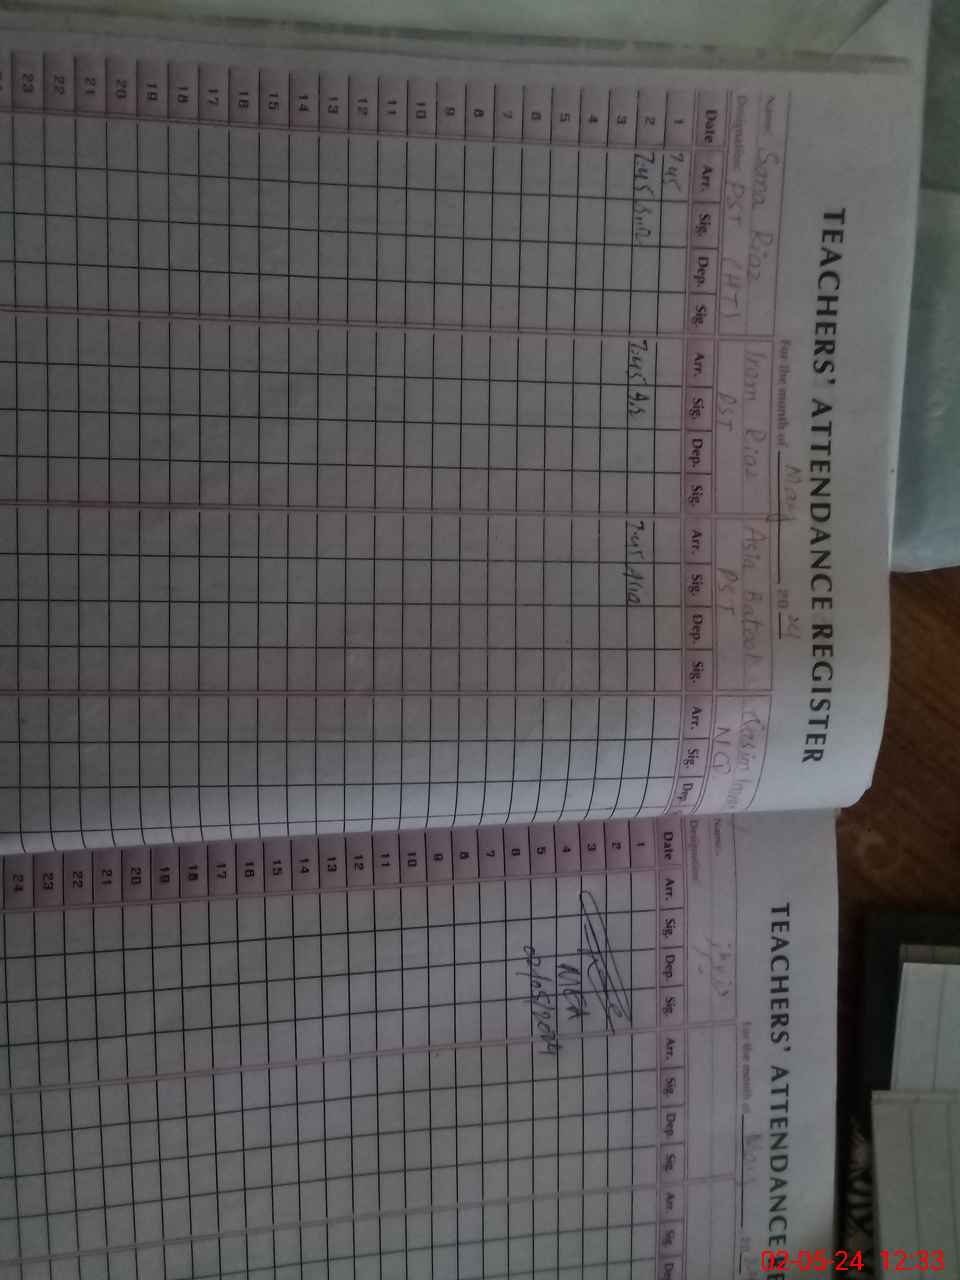 TEACHERS' ATTENDANCE REGISTER
For the month of May 2024
Name Sana Riaz Iram Riaz Asia Batool Qasim
Designation PST (HT) PST PST NC
Date Arr. Sig. Dep. Sig. Arr. Sig. Dep. Sig. Arr. Sig. Dep. Sig. Arr. Sig. Dep.
1 7.45
2 7.45 7.45 7.45 Asia
3
4
5
6
7
8
9
10
11
12
13
14
15
16
17
18
19
20
21
22
23
TEACHERS' ATTENDANCE
For the month of 20
Name
Designation
Date Arr. Sig. Dep. Sig. Arr. Sig. Dep. Sig. Arr. Sig. De
1
2
3
4 MEA
5 02/05/2024
6
7
8
9
10
11
12
13
14
15
16
17
18
19
20
21
22
23
24
02-05-24 12:33